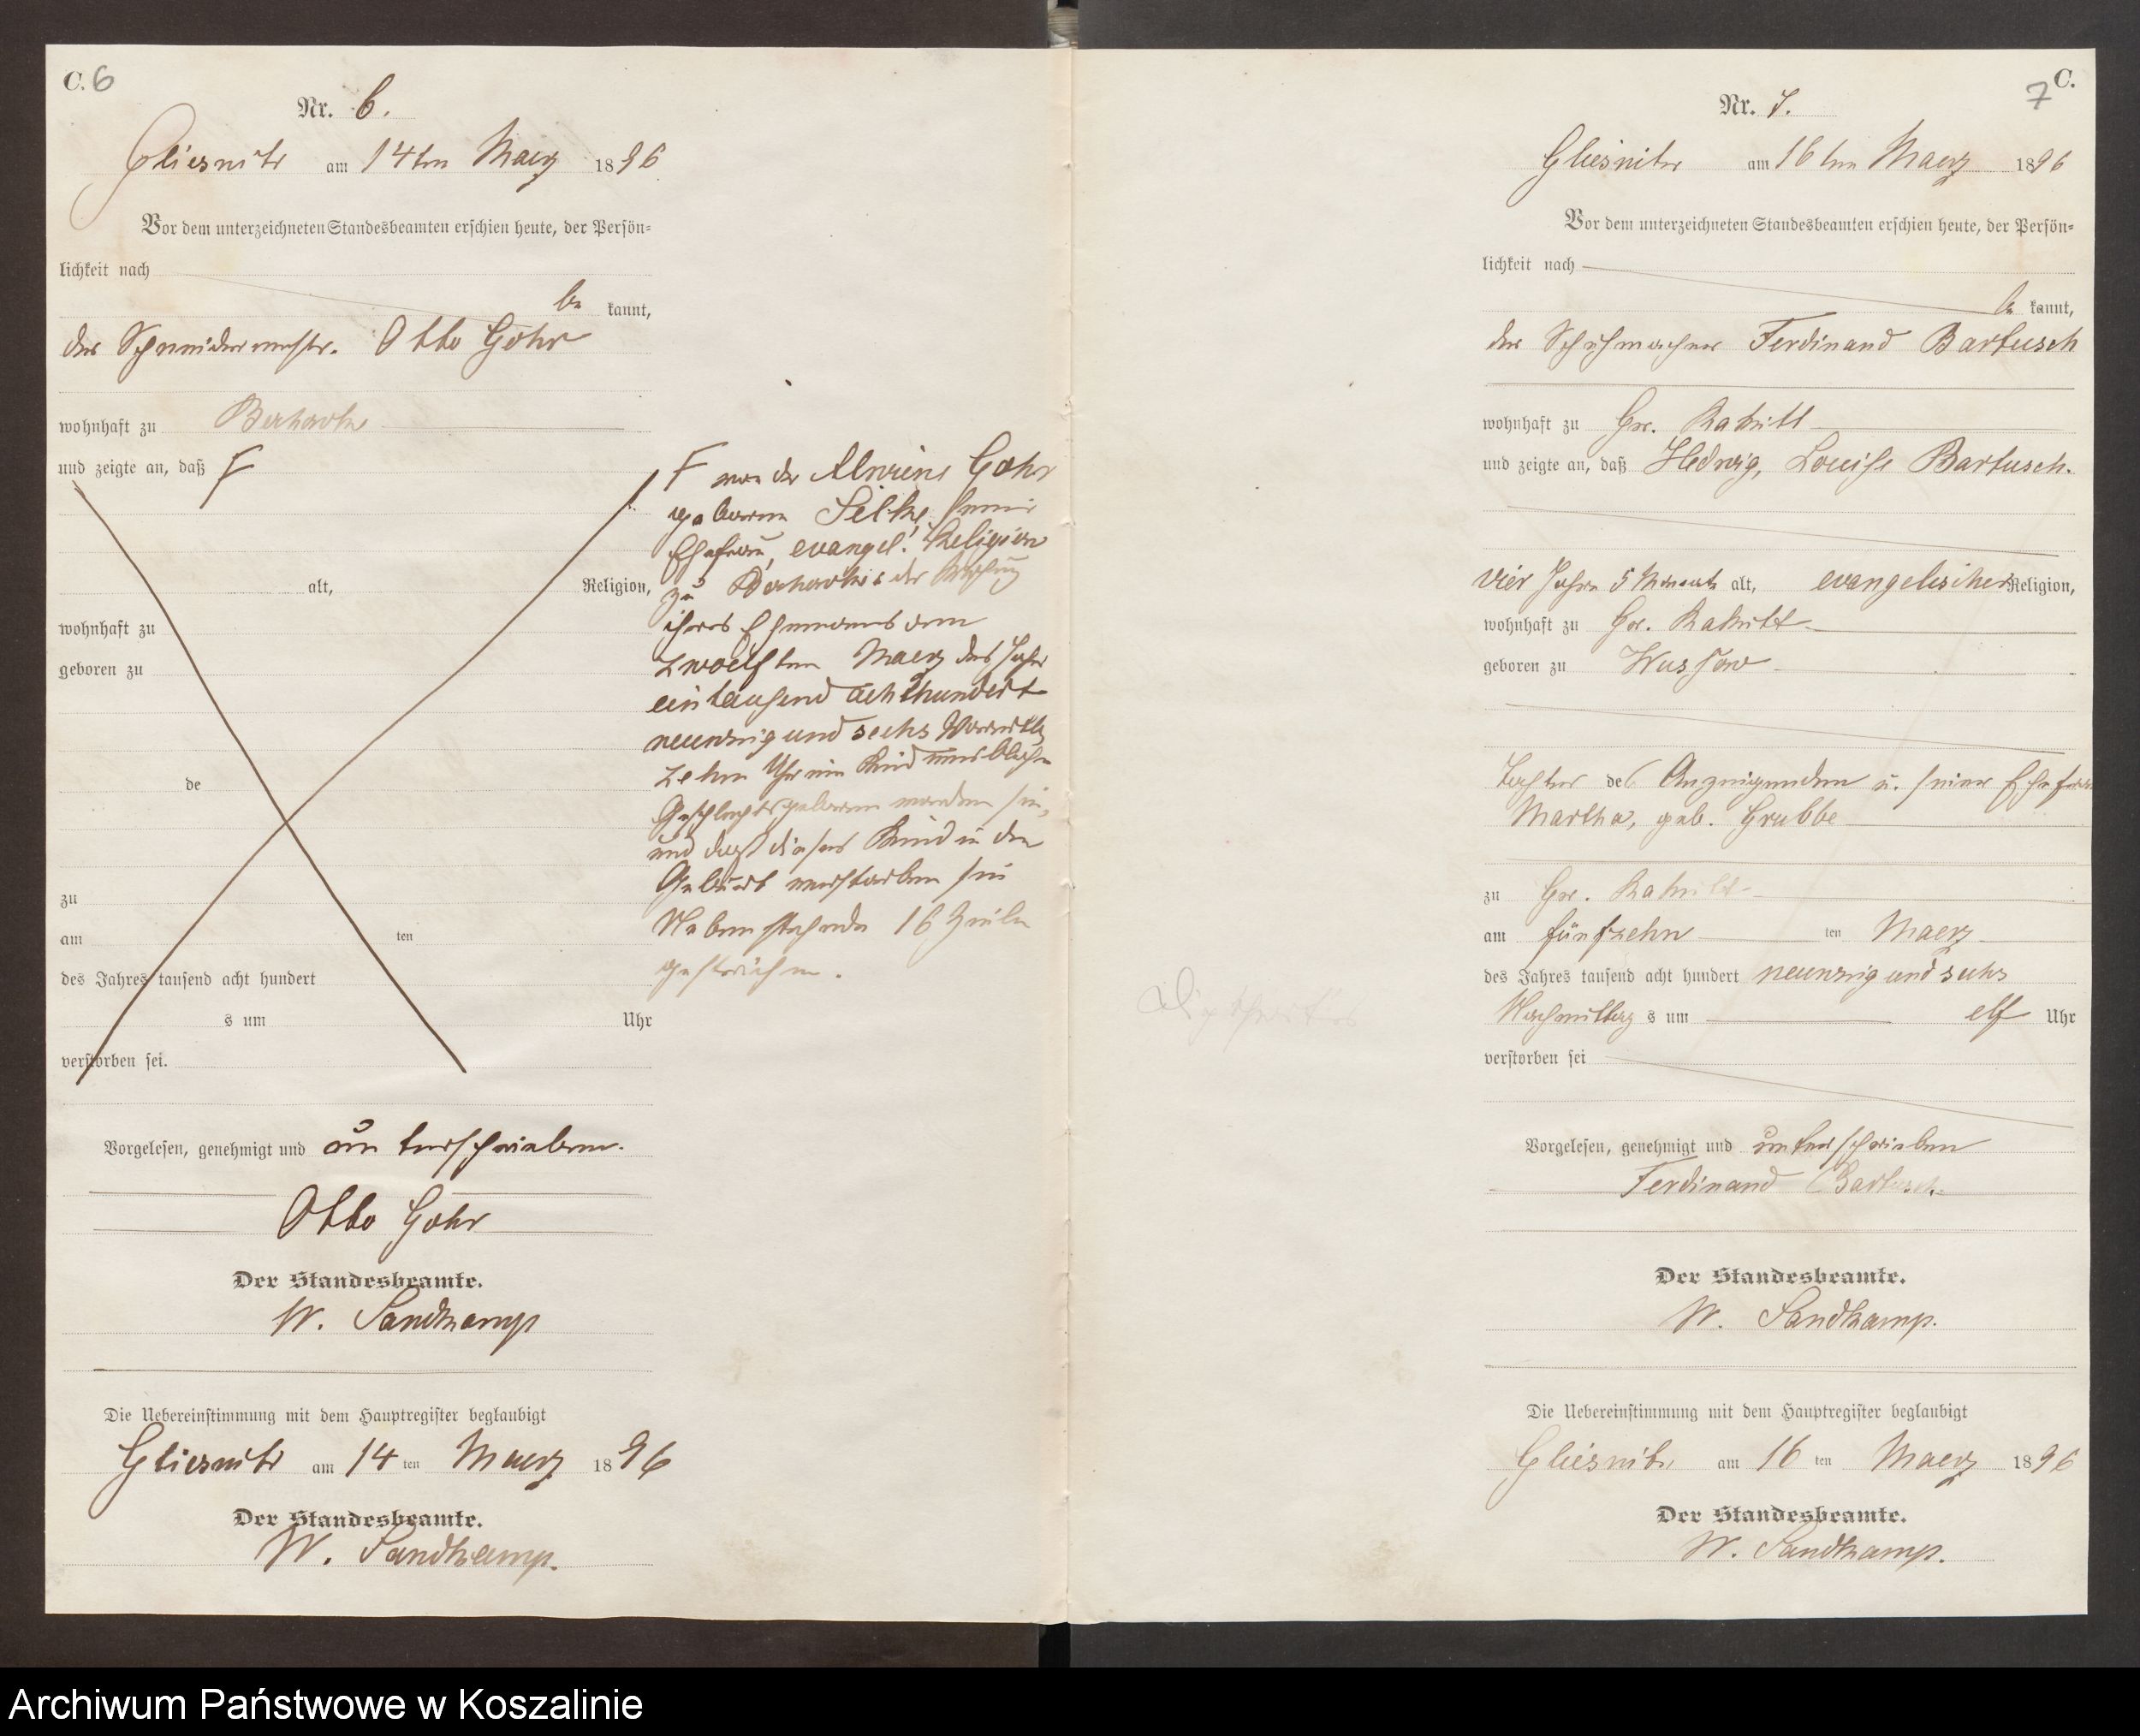 C. 6
Nr. 6.
Gliesnitz am 14ten Maerz 1896
Vor dem unterzeichneten Standesbeamten erschien heute, der Persön-
lichkeit nach
be kannt,
der Schneidermeistr. Otto Gohr
wohnhaft zu
und zeigte an, daß F
alt, Religion,
wohnhaft zu
geboren zu
de
zu
am ten
des Jahres tausend acht hundert
s um Uhr
verstorben sei.
F von der Alwine Gohr
geborene Selke, seine
Ehefrau, evangel. Religion
zu der
ihres Ehemannes am
zwoelften Maerz des Jahr
eintausend achthundert
neunzig und sechs Vormittg
zehn Uhr ein Kind
Geschlechts geboren worden sei,
und daß dieses Kind in der
Geburt verstorben sei
Nebenstehende 16 Zeilen
gestrichen.
Vorgelesen, genehmigt und unterschrieben.
Otto Gohr
Der Standesbeamte.
W. Sandkamp
Die Uebereinstimmung mit dem Hauptregister beglaubigt
Gliesnitz am 14 ten Maerz 1896
Der Standesbeamte.
W. Sandkamp.
7 C.
Nr. 7.
Gliesnitz am 16ten Maerz 1896
Vor dem unterzeichneten Standesbeamten erschien heute, der Persön-
lichkeit nach
be kannt,
der Schuhmacher Ferdinand Bartusch
wohnhaft zu Gr. Rakitt
und zeigte an, daß Hedwig, Louise Bartusch.
vier Jahre 5 Monate alt, evangelischer Religion,
wohnhaft zu Gr. Rakitt
geboren zu Wussow
Tochter des Anzeigenden u. seiner Ehefrau
Martha, geb. Grubbe
zu Gr. Rakitt
am fünfzehn ten Maerz
des Jahres tausend acht hundert neunzig und sechs
Nachmittag s um elf Uhr
verstorben sei
Vorgelesen, genehmigt und unterschrieben
Ferdinand Bartusch.
Der Standesbeamte.
W. Sandkamp.
Die Uebereinstimmung mit dem Hauptregister beglaubigt
Gliesnitz am 16 ten Maerz 1896
Der Standesbeamte.
W. Sandkamp.
Archiwum Państwowe w Koszalinie